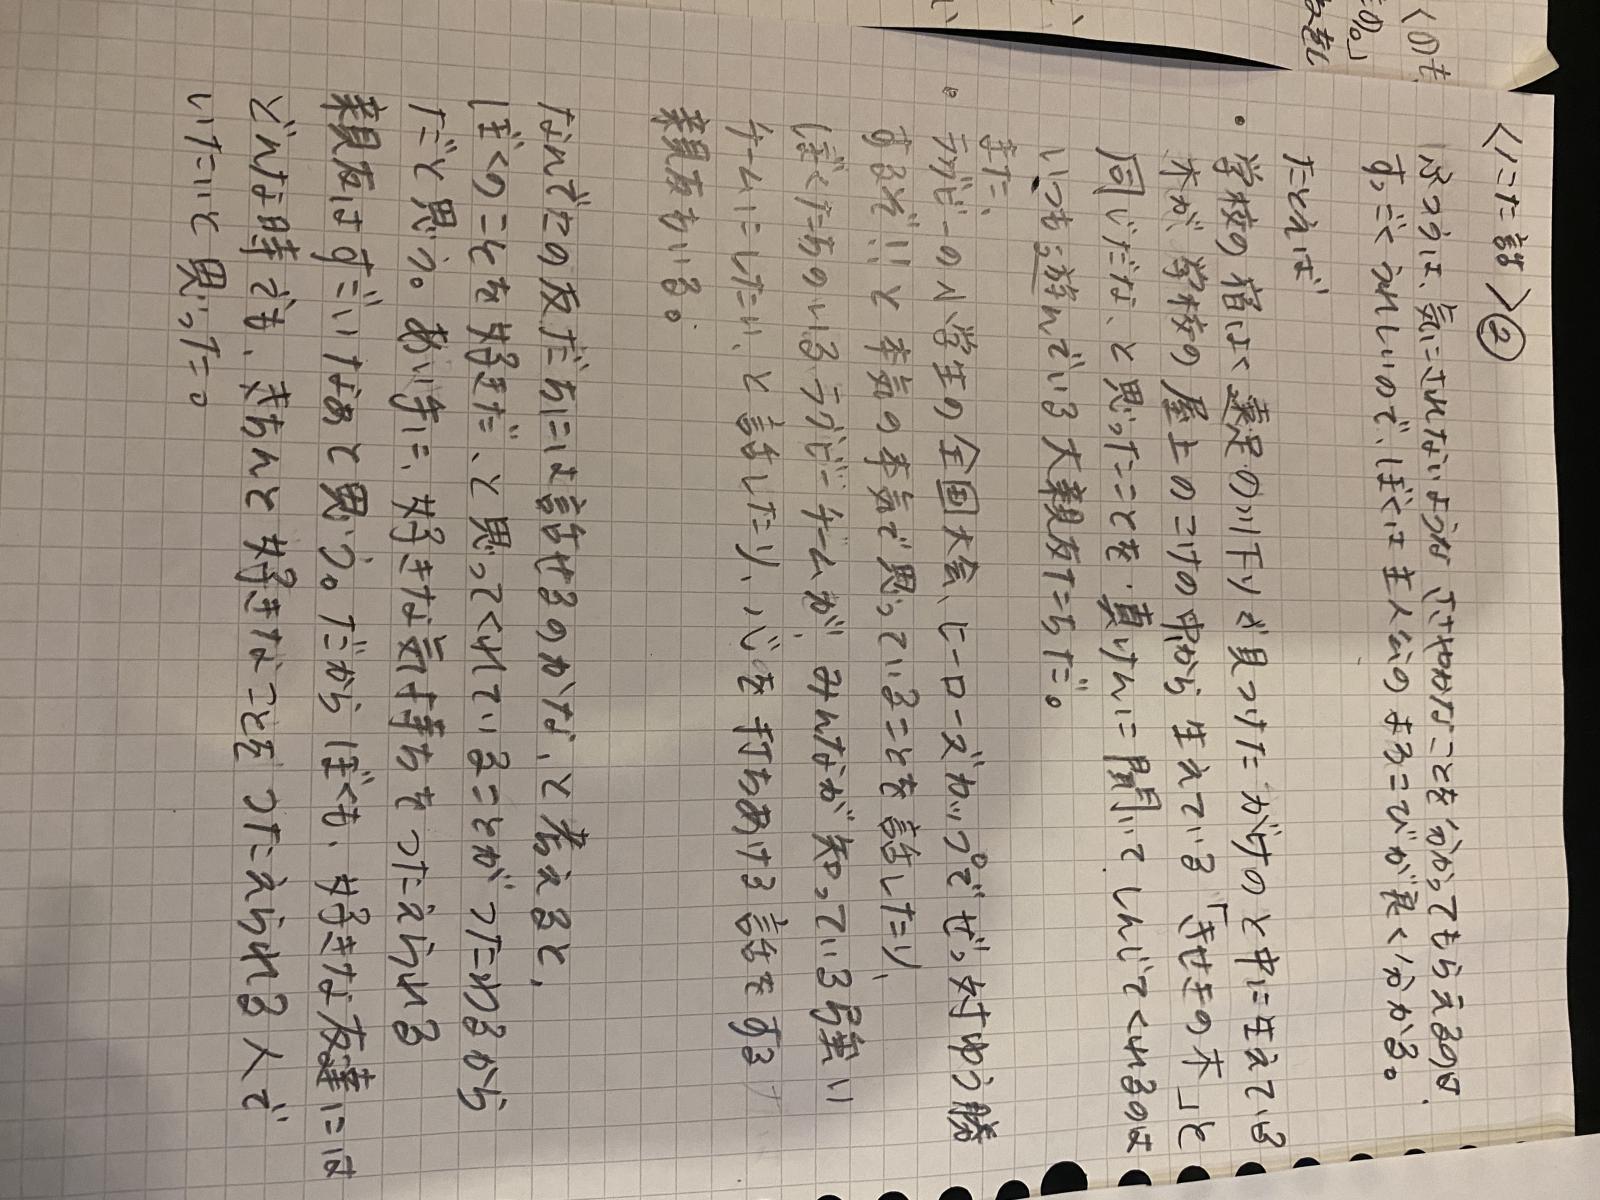 くのも
＜にた話＞②
ふつうは、気にされないような ささやかなことを分かってもらえるのは、
すっごくうれしいので、ぼくは主人公のよろこびが良く分かる。
たとえば
・学校の宿はく遠足の川下りで見つけた がけのと中に生えている
木が、学校の屋上のこけの中から 生えている「きせきの木」と
同じだな、と思ったことを、真けんに聞いて しんじてくれるのは
いつも遊んでいる大親友たちだ。
また、
。ラグビーの小学生の全国大会、ヒーローズカップでぜっ対ゆう勝
するぞ!!と 本気の本気で思っていることを話したり、
ぼくたちのいるラグビーチームが、みんなが知っている強い
チームにしたい、と話したり、心を打ちあける話をする
親友もいる。
なんでこの友だちには話せるのかな、と考えると、
ぼくのことを好きだ、と思ってくれていることが つたわるから
だと思う。あい手に、好きな気持ちを つたえられる
親友はすごいなあと思う。だから ぼくも、好きな友達には
どんな時でも、きちんと好きなことを つたえられる人で
いたいと思った。